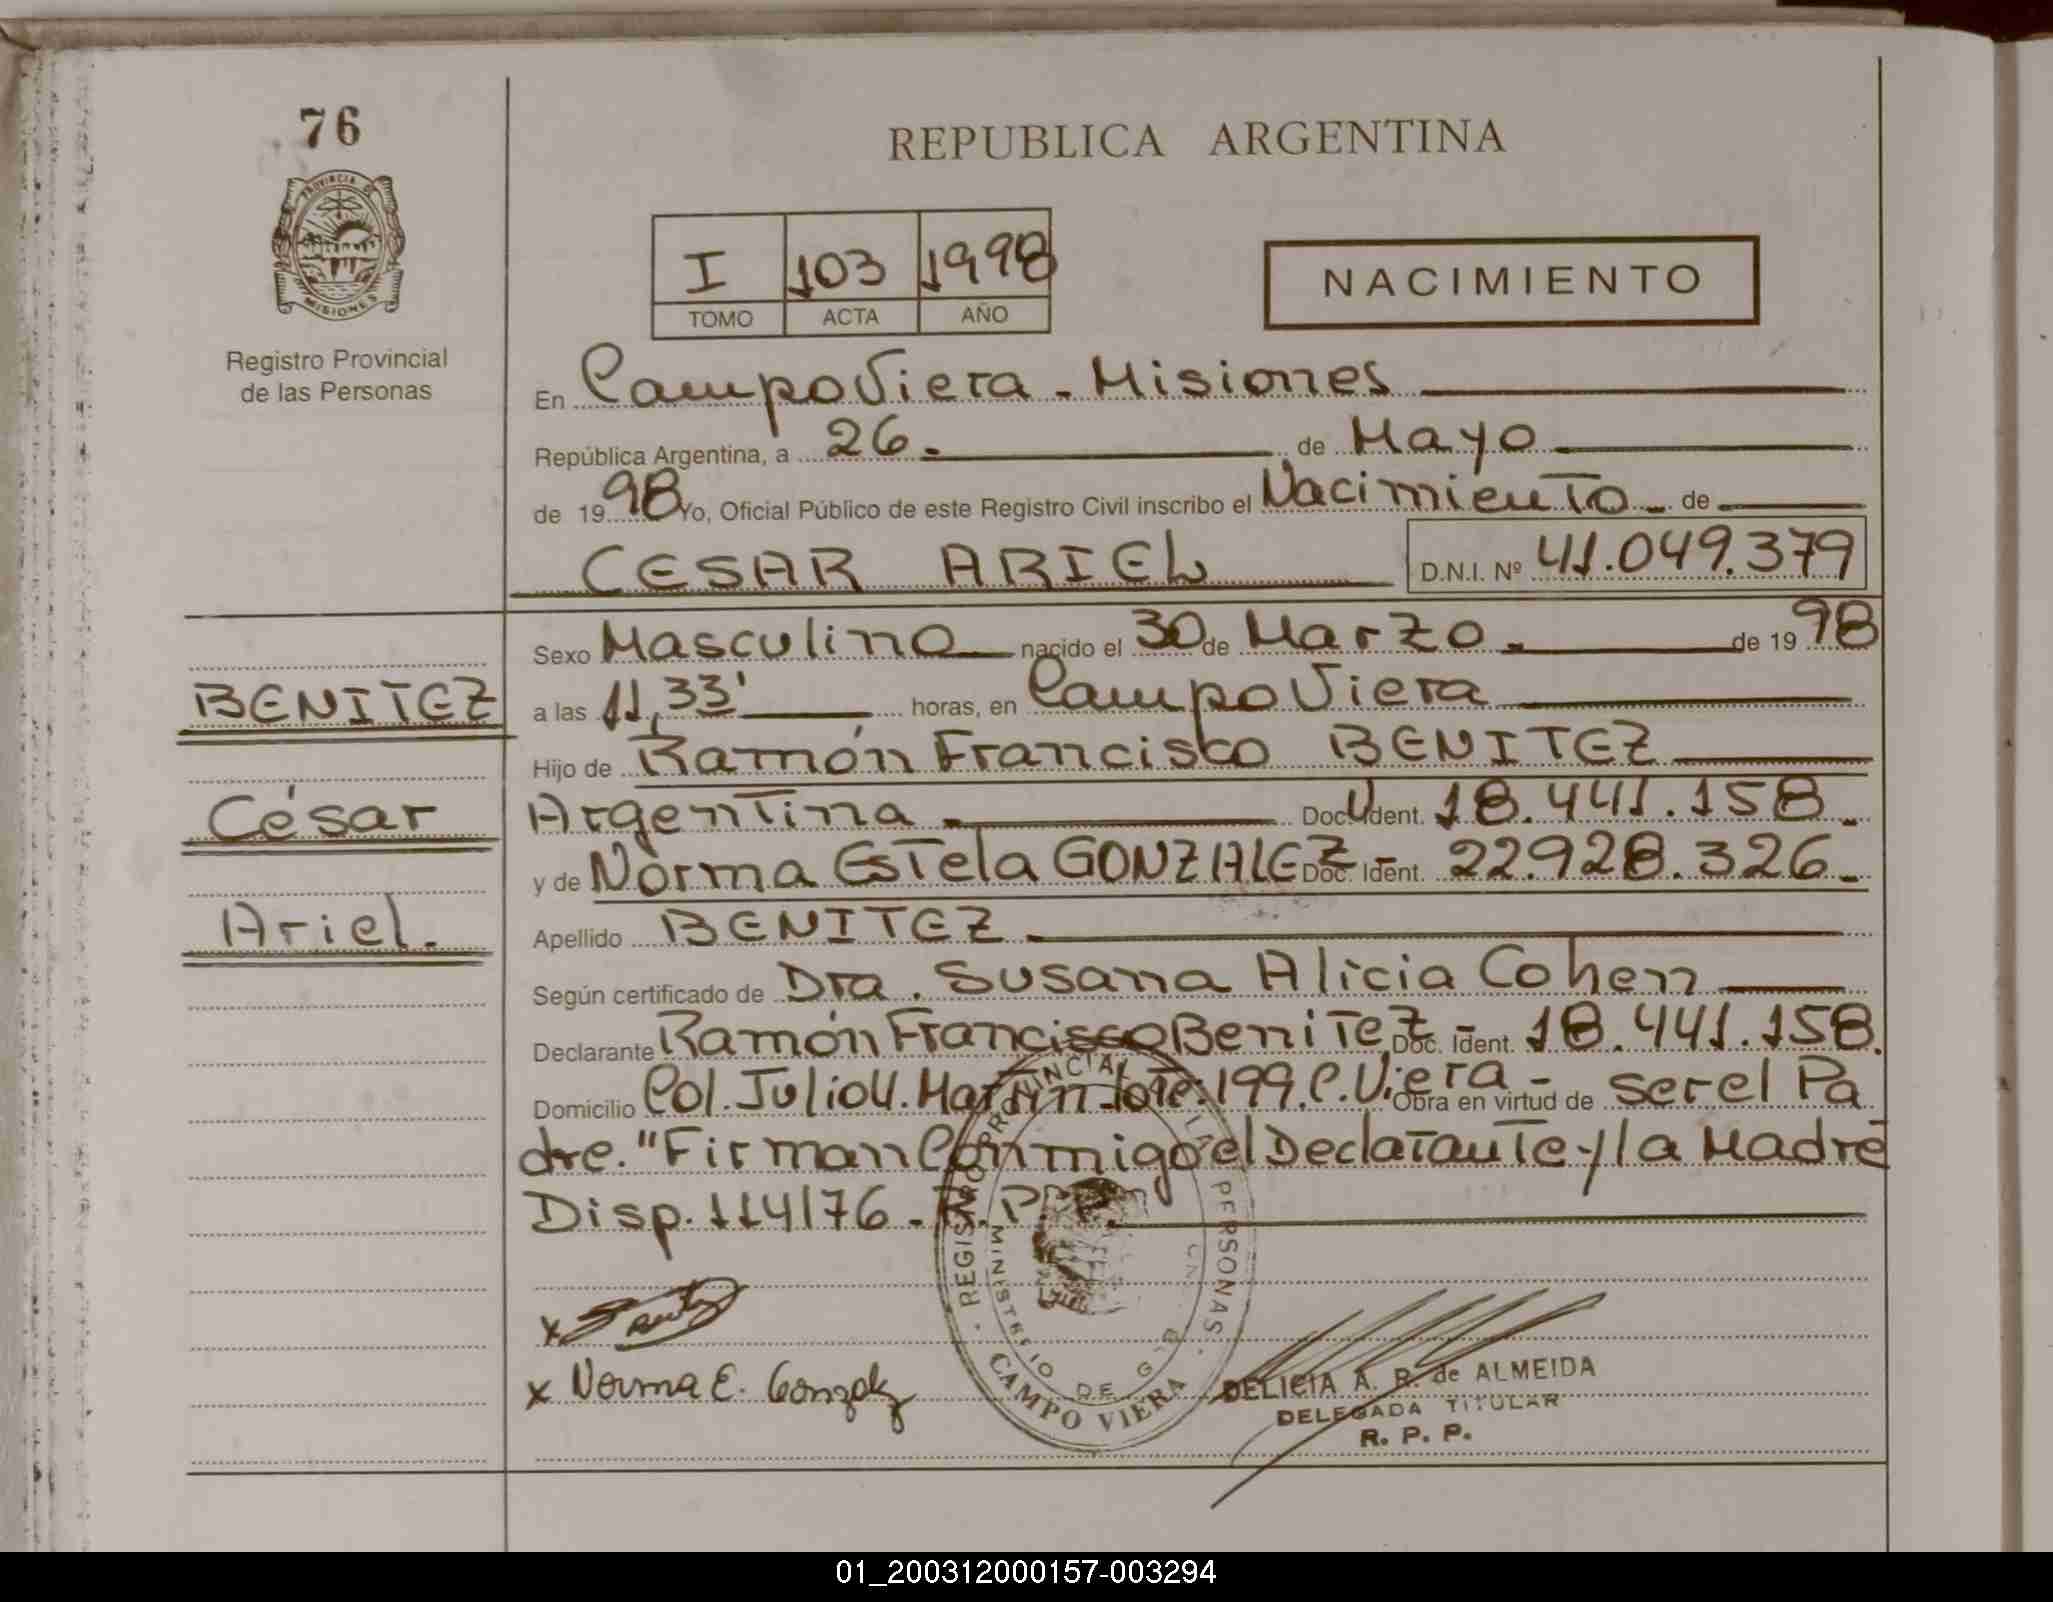 76
PROVINCIA DE
MISIONES
Registro Provincial
de las Personas
REPUBLICA ARGENTINA
I 103 1998
TOMO ACTA AÑO
NACIMIENTO
En Campo Viera - Misiones
República Argentina, a 26. de Mayo
de 1998 Yo, Oficial Público de este Registro Civil inscribo el Nacimiento de
CESAR ARIEL D.N.I. Nº 41.049.379
BENITEZ
César
Ariel.
Sexo Masculino nacido el 30 de Marzo. de 1998
a las 11,33' horas, en Campo Viera
Hijo de Ramón Francisco BENITEZ
Argentina Doc. Ident. 18.441.158.
y de Norma Estela GONZALEZ Doc. Ident. 22.928.326.
Apellido BENITEZ
Según certificado de Dra. Susana Alicia Cohen
Declarante Ramón Francisco Benitez Doc. Ident. 18.441.158.
Domicilio Col. Julio U. Martin lote: 199. C. Viera - Obra en virtud de ser el Pa
dre. "Firman Conmigo el Declarante y la Madre
Disp. 114/76 - R.P.P.
REGISTRO PROVINCIAL LAS PERSONAS
MINISTERIO DE GOB
CAMPO VIERA
x
x Norma E. Gonzalez
DELICIA A. R. de ALMEIDA
DELEGADA TITULAR
R. P. P.
01_200312000157-003294